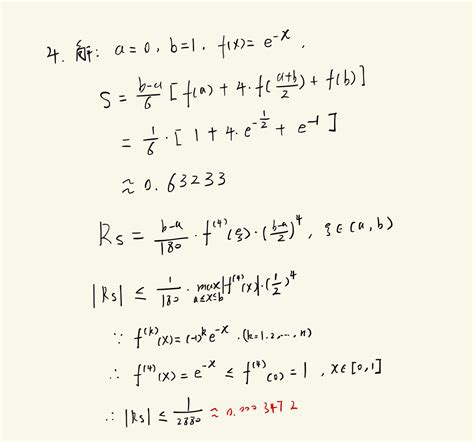 4. 解: a=0, b=1, f(x)=e^{-x}.
S = \frac{b-a}{6} [f(a)+4·f(\frac{a+b}{2})+f(b)]
= \frac{1}{6}·[1+4·e^{-\frac{1}{2}}+e^{-1}]
≈ 0.63233
R_s = \frac{b-a}{180}·f^{(4)}(ξ)·(\frac{b-a}{2})^4, ξ∈(a,b)
|R_s| ≤ \frac{1}{180}·\max_{a≤x≤b}|f^{(4)}(x)|·(\frac{1}{2})^4
∵ f^{(k)}(x)=(-1)^k e^{-x}.(k=1,2,...,n)
∴ f^{(4)}(x)=e^{-x} ≤ f^{(4)}(0)=1, x∈[0,1]
∴ |R_s| ≤ \frac{1}{2880} ≈ 0.0003472